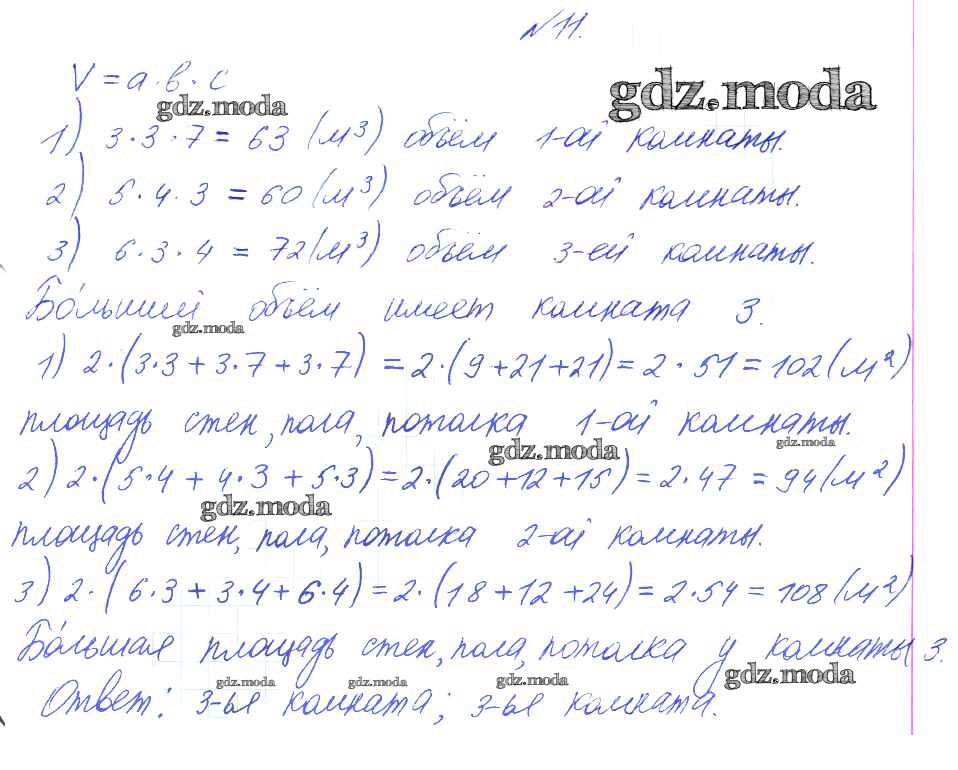 № 11.
V = a · b · c
gdz.moda
gdz.moda
1) 3 · 3 · 7 = 63 (м³) объём 1-ой комнаты.
2) 5 · 4 · 3 = 60 (м³) объём 2-ой комнаты.
3) 6 · 3 · 4 = 72 (м³) объём 3-ей комнаты.
Бо́льший объём имеет комната 3.
gdz.moda
1) 2 · (3·3 + 3·7 + 3·7) = 2 · (9 + 21 + 21) = 2 · 51 = 102 (м²)
площадь стен, пола, потолка 1-ой комнаты.
gdz.moda
gdz.moda
2) 2 · (5·4 + 4·3 + 5·3) = 2 · (20 + 12 + 15) = 2 · 47 = 94 (м²)
gdz.moda
площадь стен, пола, потолка 2-ой комнаты.
3) 2 · (6·3 + 3·4 + 6·4) = 2 · (18 + 12 + 24) = 2 · 54 = 108 (м²)
Бо́льшая площадь стен, пола, потолка у комнаты 3.
gdz.moda
gdz.moda
gdz.moda
gdz.moda
Ответ: 3-ья комната; 3-ья комната.